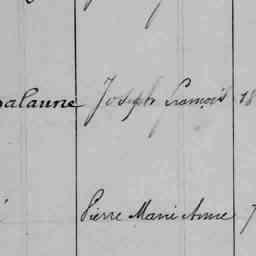 alaune Joseph François 18
Pierre Marie Anne 7